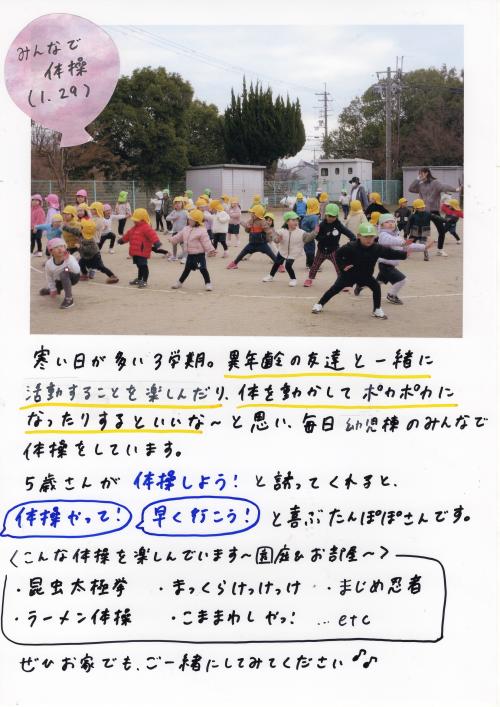 みんなで
体操
(1.29)
寒い日が多い3学期。異年齢の友達と一緒に
活動することを楽しんだり、体を動かしてポカポカに
なったりするといいな～と思い、毎日幼児棟のみんなで
体操をしています。
5歳さんが 体操しよう！ と誘ってくれると、
体操やって！ 早く行こう！ と喜ぶたんぽぽさんです。
〈こんな体操を楽しんでいます～園庭&お部屋～〉
・昆虫太極拳 ・まっくらけっけっけ ・まじめ忍者
・ラーメン体操 ・こままわしやっ! …etc
ぜひお家でも、ご一緒にしてみてください♪♪